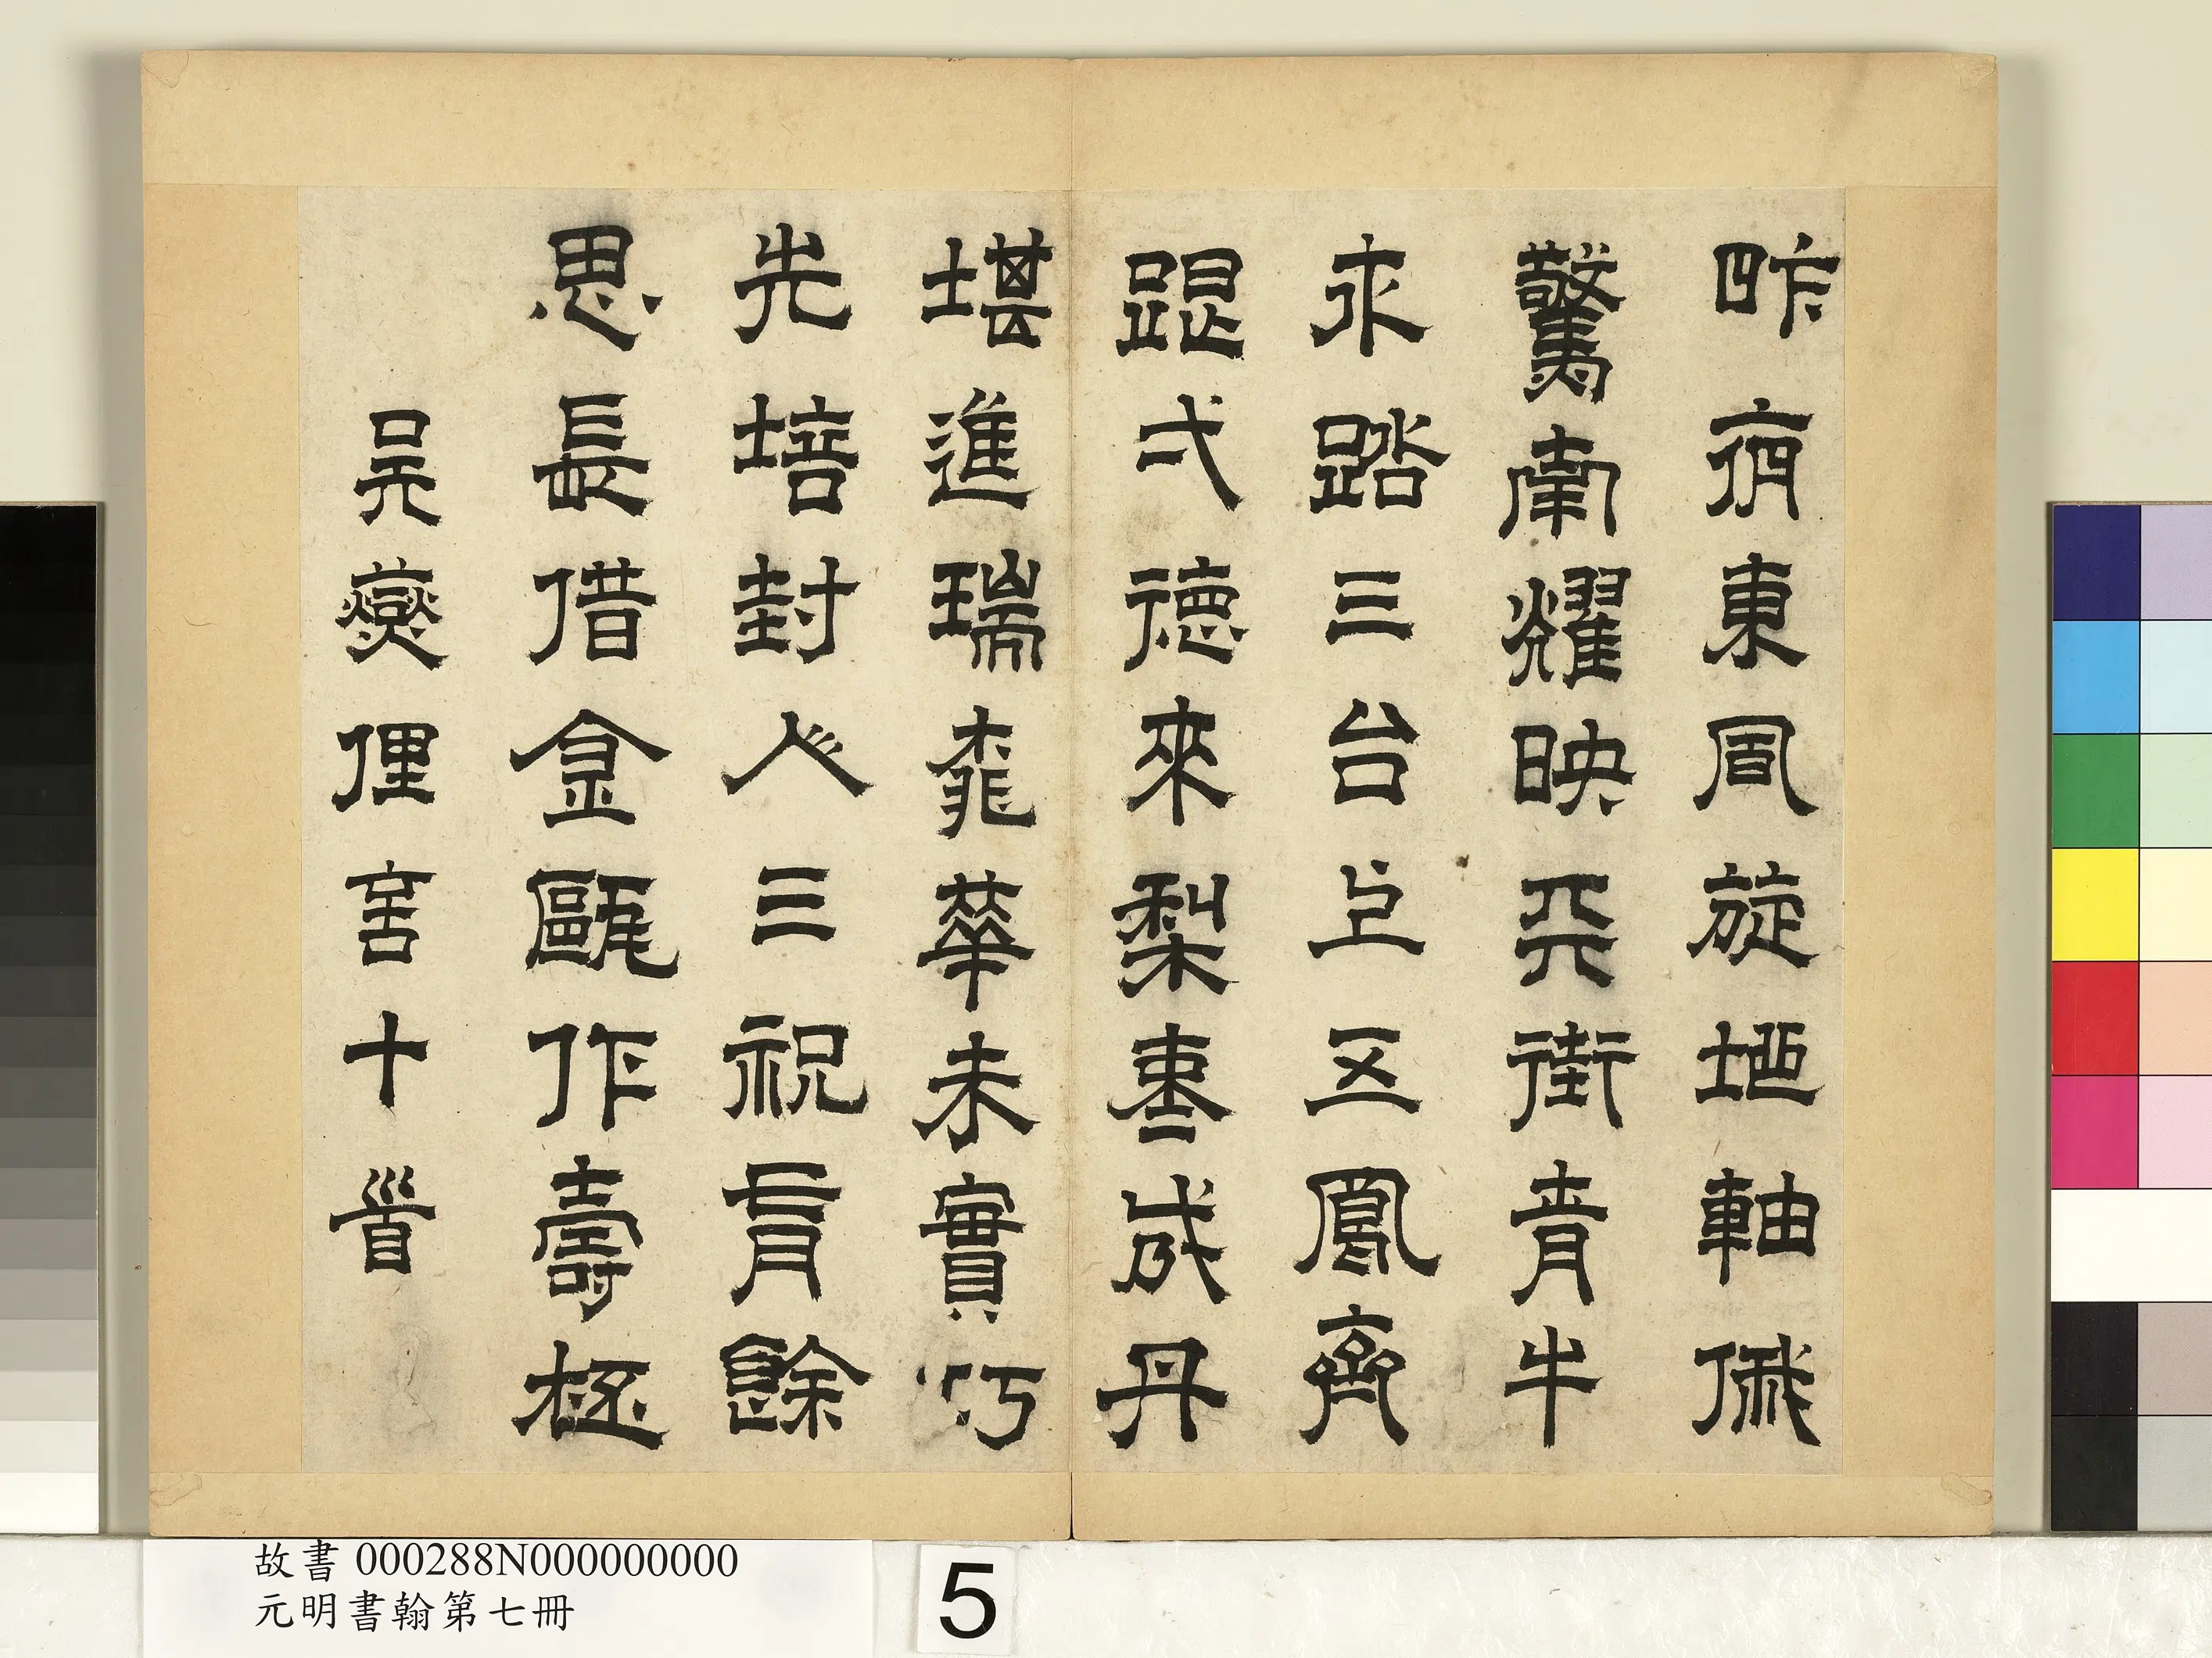 昨夜東風旋地軸俄
驚南耀映天街青牛
永踏三台上五鳳齊
踶弍德來梨棗成丹
堪進瑞桃華未實巧
先培封人三祝有餘
思長借金甌作壽柸
吳爕俚言十首
故書 000288N000000000
元明書翰第七冊
5